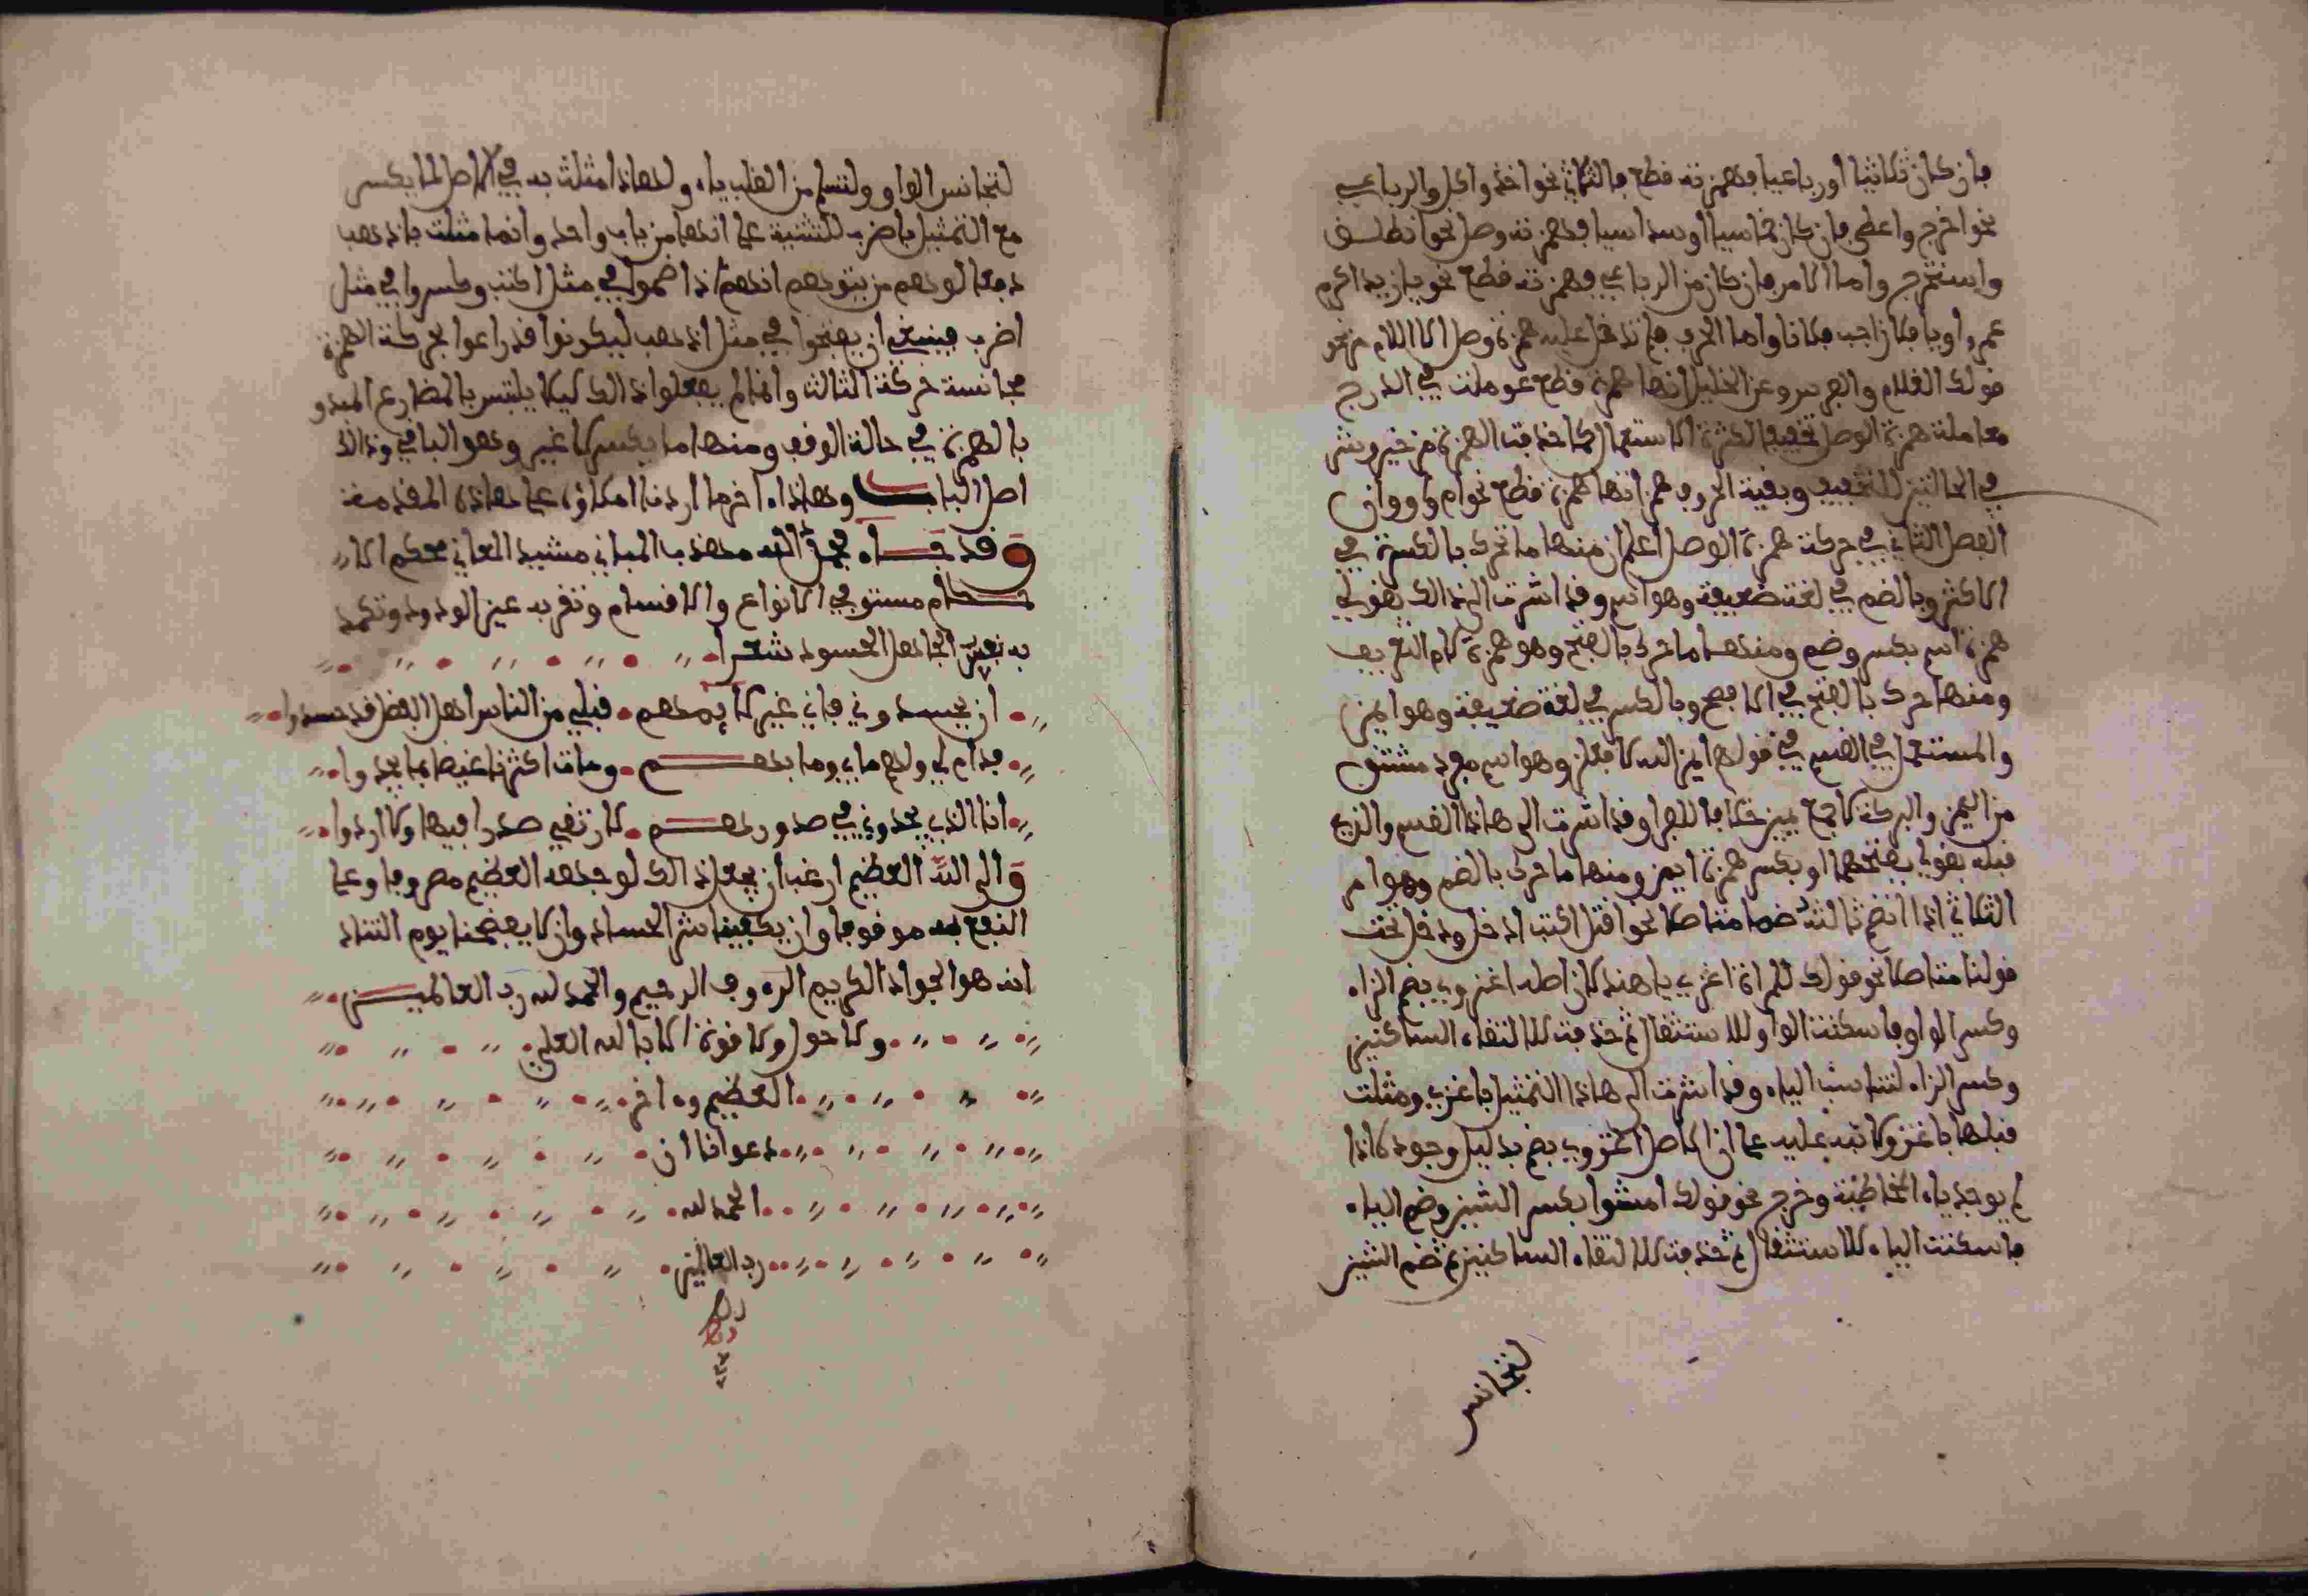 فإن كان ثلاثيا أو رباعيا فهمزته قطع فالثلاثي نحو أخذ وأكل والرباعي
نحو أخرج وأعطى فإن كان خماسيا أو سداسيا فهمزته وصل نحو انطلق
واستخرج وأما الأمر فإن كان من الرباعي فهمزته قطع نحو يا زيد أكرم
عمروا ويا فلان أجب فلانا وأما الحرف فلم تدخل عليه همزة وصل إلا اللام من نحو
قولك الغلام والفرس وعن الخليل أنها همزة قطع عوملت في الدرج
معاملة همزة الوصل تخفيفا لكثرة الاستعمال كما حذفت الهمزة من خير وشر
في الحالتين للتخفيف وبقية الحروف همزاتها همزة قطع نحو أم وأو وأن
الفصل الثاني في حركة همزة الوصل اعلم أن منها ما تحرك بالكسرة في
الأكثر وبالضم في لغة ضعيفة وهو اسم وقد أشرت إلى ذالك بقولي
همزة اسم بكسر وضم ومنها ما حرك بالفتح وهو همزة لام التعريف
ومنها حرك بالفتح في الأفصح وبالكسر في لغة ضعيفة وهو أيمن
والمستعمل في القسم في قولهم أيمن الله لأفعلن وهو اسم مفرد مشتق
من اليمن والبركة لا جمع يمين خلافا للفراء وقد أشرت إلى هاذا القسم والذي
قبله بقولي بفتحهما أو بكسر همزة أيمن ومنها ما حرك بالضم وهو أمر
الثلاثي إذا انضم ثالثه ضما متأصلا نحو اقتل اكتب ادخل ودخل تحت
قولنا متأصلا نحو قولك للمرأة اغزي يا هند لأن أصله اغزوي بضم الزاء
وكسر الواو فأسكنت الواو للاستثقال ثم حذفت للالتقاء الساكنين
وكسر الزاء لتناسب الياء وقد أشرت إلى هاذا التمثيل باغزي ومثلت
قبلها باغزو لأنبه عليه على أن الأصل اغزوي بضم بدليل وجوده إذا
لم يوجد ياء المخاطبة وخرج نحو قولك امشوا بكسر الشين وضم الياء
فأسكنت الياء للاستثقال ثم حذفت للالتقاء الساكنين ثم ضم الشين
لتجانس
لتجانس الواو ولتسلم من القلب ياء ولهاذا مثلت به في الأصل لما يكسر
مع التمثيل باضرب للتنبيه على أنهما من باب واحد وإنما مثلت باذهب
دفعا لوهم من يتوهم أنهم إذا ضموا في مثل اكتب وكسروا في مثل
اضرب فينبغي أن يفتحوا في مثل اذهب ليكونوا قد راعوا بحركة الهمزة
مجانسة حركة الثالث وإنما لم يفعلوا ذالك ليلا يلتبس بالمضارع المبدو
بالهمزة في حالة الوقف ومنها ما يكسر لا غير وهو الباقي وذالك
أصل الباب وهاذا ءاخر ما أردنا إملاؤه على هاذه المقدمة
وقد جاء بحمد الله مهذب المباني مشيد المعاني محكم الا
حكام مستوفي الأنواع والأقسام وتقر به عين الودود وتكمد
به نفس الجاهل الحسود شعرا
إن يحسدوني فإني غير لائمهم قبلي من الناس أهل الفضل قد حسدوا
فدام لي ولهم ما بي وما بهم ومات أكثرنا غيضا بما يجدوا
أنا الذي يجدوني في صدورهم لا أرتقي صدرا فيها ولا أردوا
وإلى الله العظيم أرغب أن يجعل ذالك لوجهه العظيم مصروفا وعلى
النفع به موقوفا وأن يكفينا شر الحساد وأن لا يفضحنا يوم التناد
إنه هو الجواد الكريم الرءوف الرحيم والحمد لله رب العالمين
ولا حول ولا قوة إلا بالله العلي
العظيم وءاخر
دعوانا أن
الحمد لله
رب العالمين